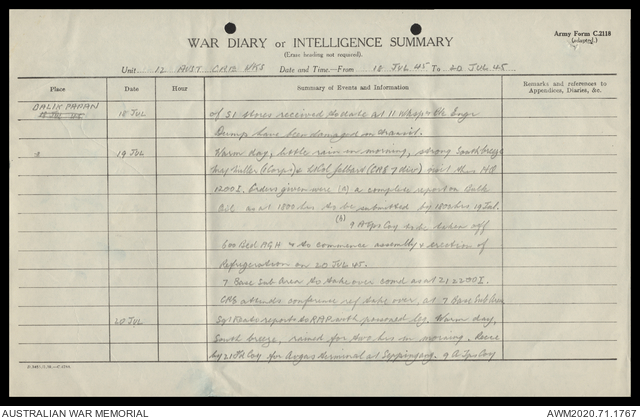 Army Form C.2118
(adapted.)
WAR DIARY or INTELLIGENCE SUMMARY
(Erase heading not required).
Unit 12 AUST C.R.E. WKS Date and Time—From 18 JUL 45 To 20 JUL 45
Place Date Hour Summary of Events and Information Remarks and references to Appendices, Diaries, &c.
BALIKPAPAN 18 Jul of S1 stores received to date at 11 Wksp & the Engr
Dumps have been damaged in transit.
" 19 Jul Warm day, little rain in morning, strong South breeze
Maj Miller (Corps) & Lt Col (CRE 7 div) visit this HQ
1200 I. Orders given were (A) a complete report on Bulk
as at 1800 hrs to be submitted by 1800 hrs 19 Jul.
(B) 9 A Tps Coy to be taken off
600 Bed AGH & to commence assembly & erection of
Refrigeration on 20 JUL 45.
7 Base Sub Area to take over comd as at 212200 I.
CRE attends conference ref take over at 7 Base Sub Area.
20 Jul Sgt reports to RAP with leg. Warm day,
South breeze, rained for two hrs in morning. Recce
by 21 Pd Coy for Avgas terminal at Seppinjang. 9 A Tps Coy
AUSTRALIAN WAR MEMORIAL
AWM2020.71.1767